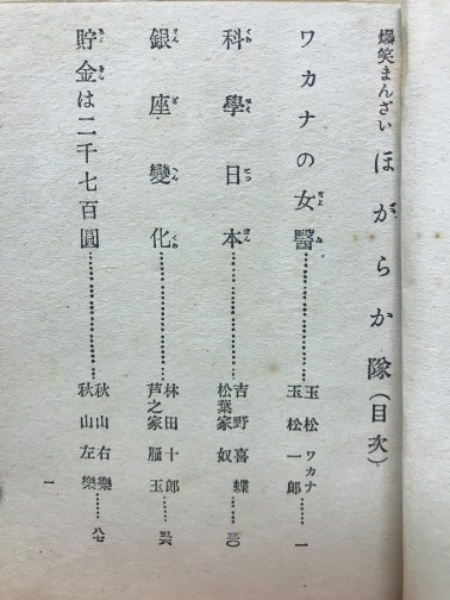 爆笑まんざい ほがらか隊(目次)
ワカナの女醫……………玉松ワカナ
玉松一郎……一
科學日本……………吉野喜蝶
松葉家奴……三〇
銀座變化……………林田十郎
芦之家雁玉……五六
貯金は二千七百圓……………秋山右樂
秋山左樂……八七
一